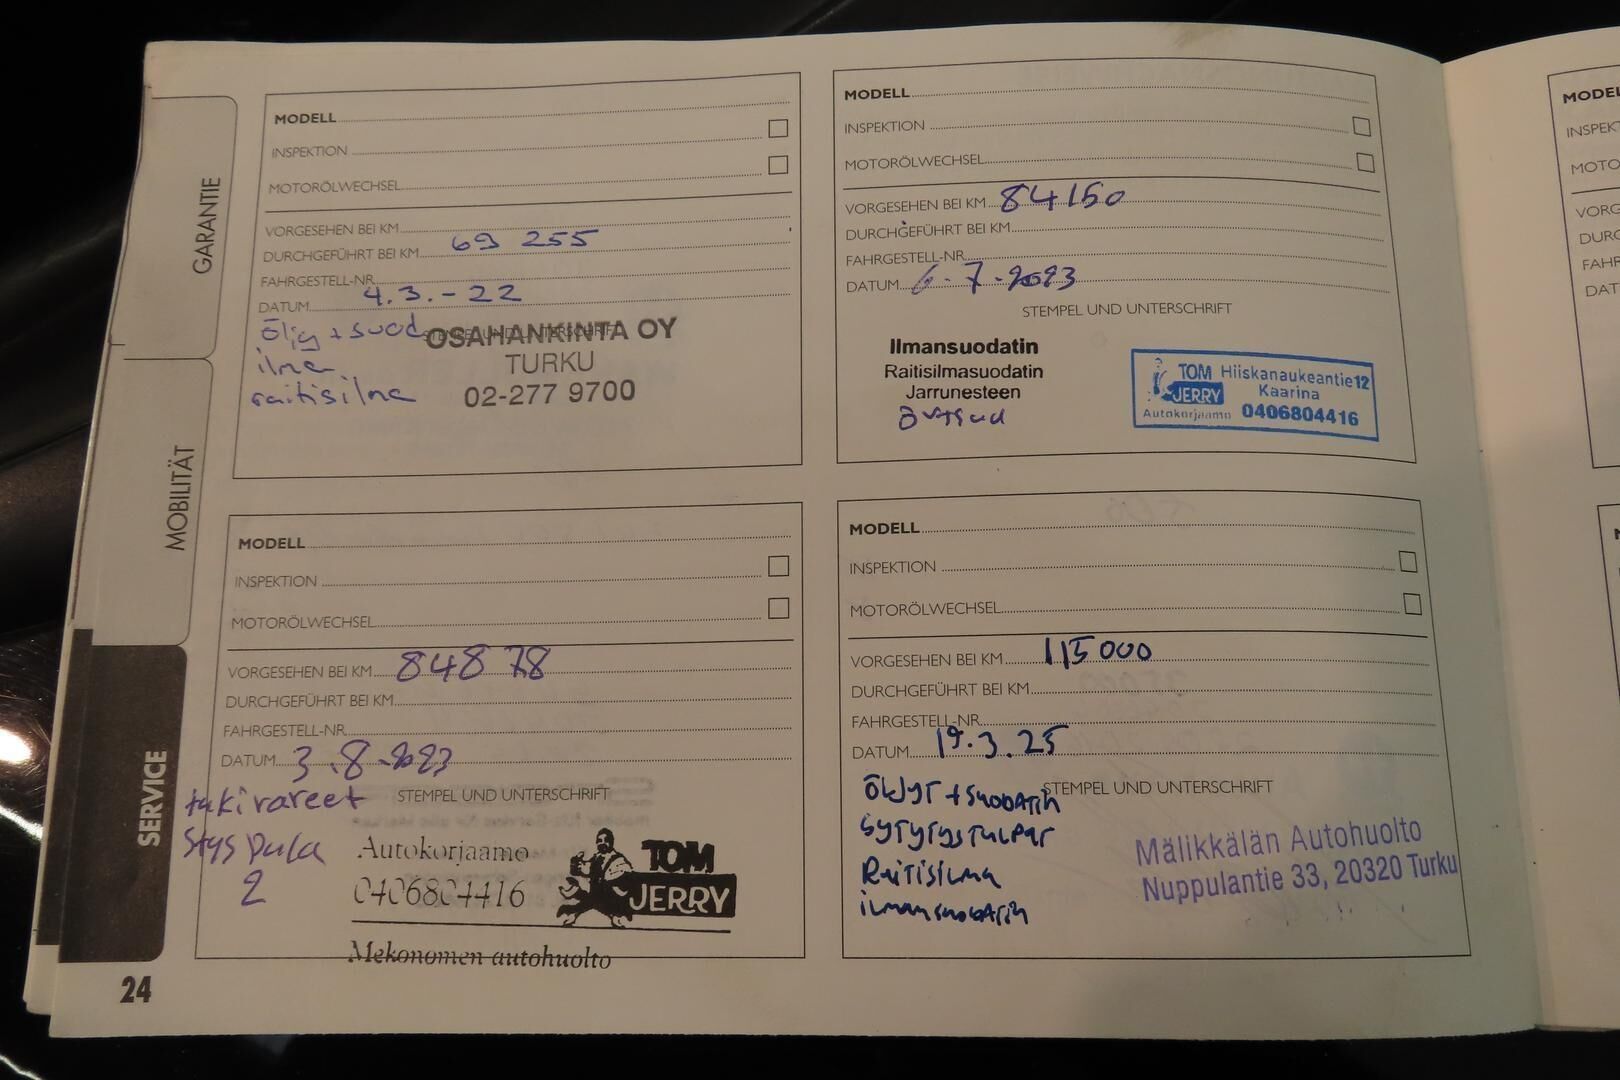 GARANTIE
MOBILITÄT
SERVICE
24
MODELL
INSPEKTION
MOTORÖLWECHSEL
VORGESEHEN BEI KM
DURCHGEFÜHRT BEI KM 69 255
FAHRGESTELL-NR.
DATUM 4.3.-22
STEMPEL UND UNTERSCHRIFT
öljy + suod
ilma
raitisilma
OSAHANKINTA OY
TURKU
02-277 9700
MODELL
INSPEKTION
MOTORÖLWECHSEL
VORGESEHEN BEI KM 84150
DURCHGEFÜHRT BEI KM
FAHRGESTELL-NR.
DATUM 6.7.2023
STEMPEL UND UNTERSCHRIFT
Ilmansuodatin
Raitisilmasuodatin
Jarrunesteen
TOM JERRY
Autokorjaamo
Hiiskanaukeantie12
Kaarina
0406804416
MODELL
INSPEKTION
MOTORÖLWECHSEL
VORGESEHEN BEI KM 84878
DURCHGEFÜHRT BEI KM
FAHRGESTELL-NR.
DATUM 3.8.2023
STEMPEL UND UNTERSCHRIFT
2
Autokorjaamo
0406804416
TOM JERRY
Mekonomen autohuolto
MODELL
INSPEKTION
MOTORÖLWECHSEL
VORGESEHEN BEI KM 115000
DURCHGEFÜHRT BEI KM
FAHRGESTELL-NR.
DATUM 19.3.25
STEMPEL UND UNTERSCHRIFT
ÖLJYT + SUODATIN
SYTYTYSTULPAT
RAITISILMA
ILMANSUODATIN
Mälikkälän Autohuolto
Nuppulantie 33, 20320 Turku